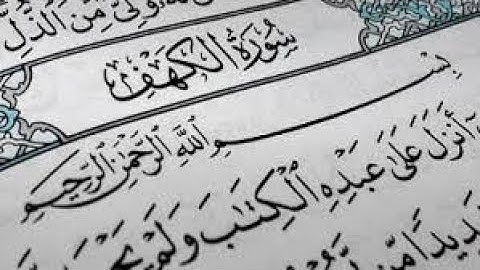 وَلِيٌّ مِّنَ الذُّلِّ
سُورَةُ الْكَهْفِ
بِسْمِ اللَّهِ الرَّحْمَٰنِ الرَّحِيمِ
أَنزَلَ عَلَىٰ عَبْدِهِ الْكِتَابَ وَلَمْ